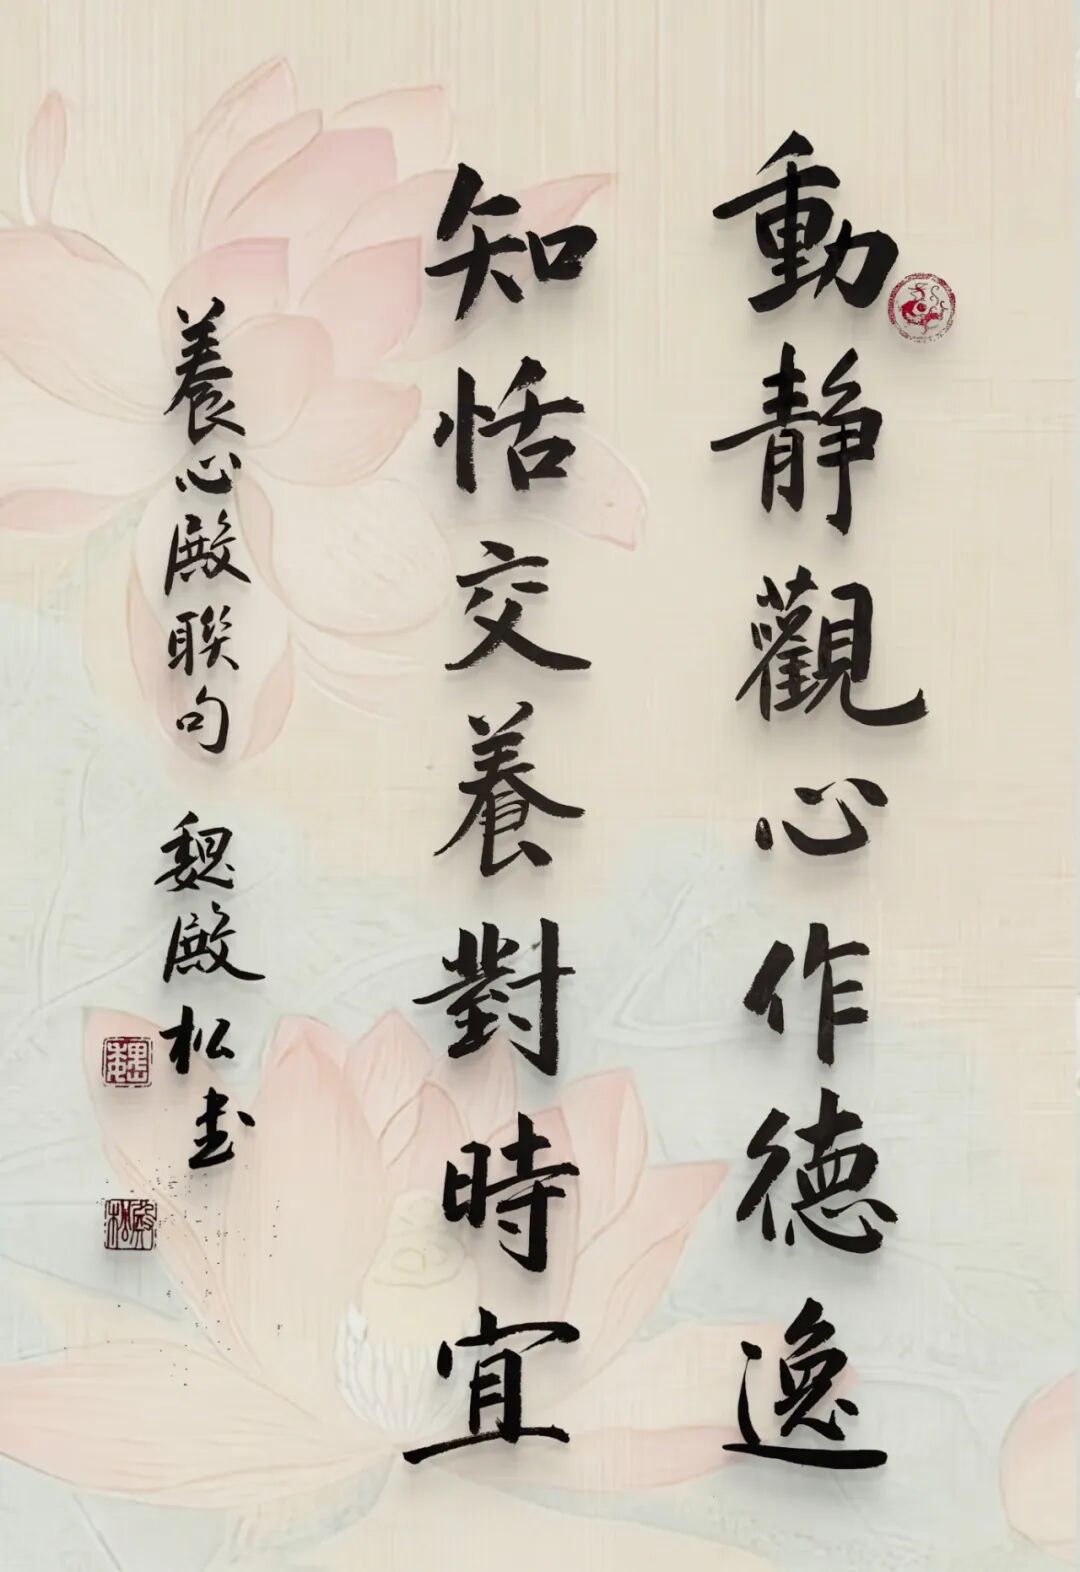 動静觀心作德逸
知恬交養對時宜
養心殿聯句 魏殿松书
魏
殿松